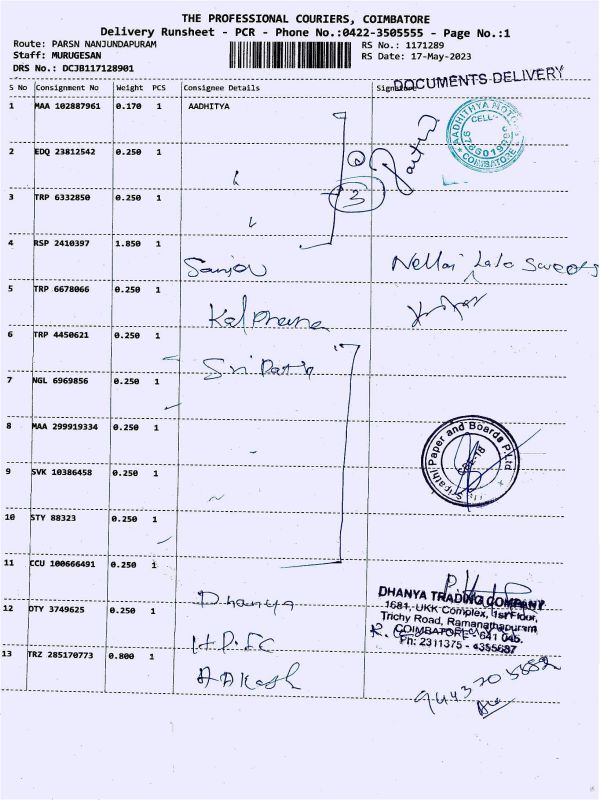 THE PROFESSIONAL COURIERS, COIMBATORE
Delivery Runsheet - PCR - Phone No.:0422-3505555 - Page No.:1
Route: PARSN NANJUNDAPURAM RS No.: 1171289
Staff: MURUGESAN RS Date: 17-May-2023
DRS No.: DCJB117128901
DOCUMENTS DELIVERY
S No Consignment No Weight PCS Consignee Details Signature
1 MAA 102887961 0.170 1 AADHITYA
AADHITHYA MOTORS
CELL
COIMBATORE
2 EDQ 23812542 0.250 1
3
3 TRP 6332850 0.250 1
4 RSP 2410397 1.850 1
Sanjov Nellai Lala Sweets
5 TRP 6678066 0.250 1
Kalphana
6 TRP 4450621 0.250 1
Sri Path
7 NGL 6969856 0.250 1
8 MAA 299919334 0.250 1
Sripathi Paper and Boards P.Ltd
CBE-18
9 SVK 10386458 0.250 1
10 STY 88323 0.250 1
11 CCU 100666491 0.250 1
Dhanya
DHANYA TRADING COMPANY
1681, UKK Complex, 1st Floor,
Trichy Road, Ramanathapuram,
COIMBATORE - 641 045.
Ph: 2311375 - 4355687
12 OTY 3749625 0.250 1
HDFC
13 TRZ 285170773 0.800 1
AAKash